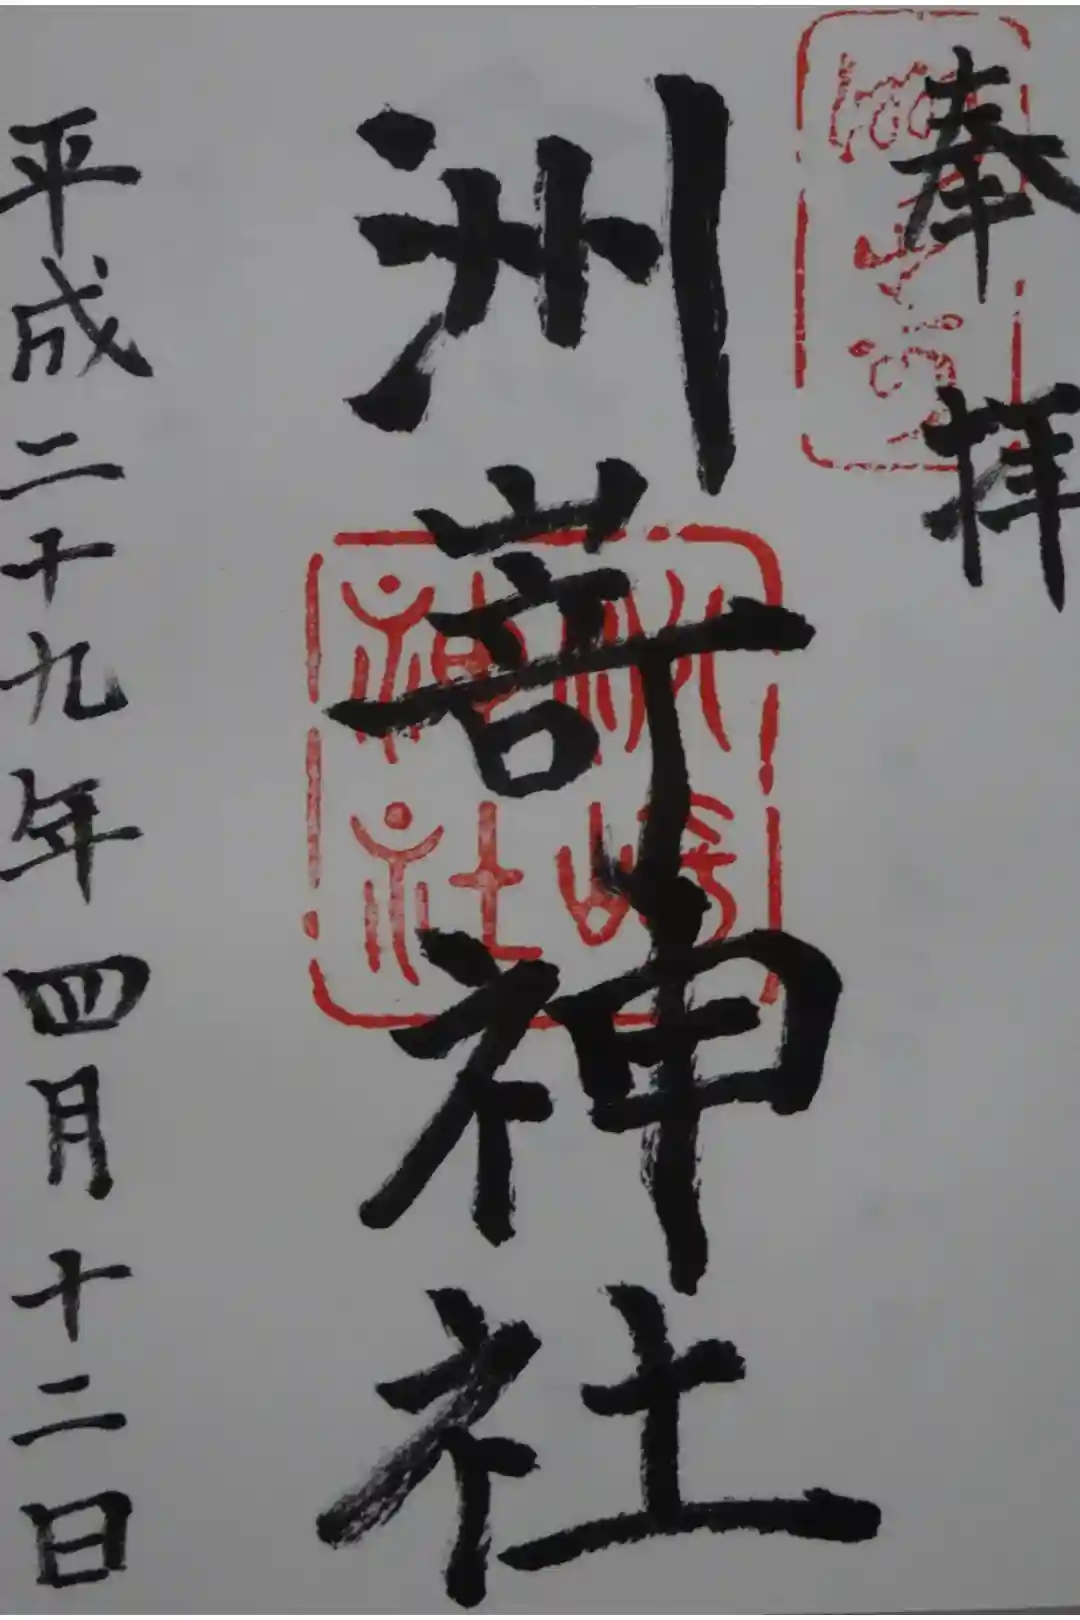 奉拝
洲嵜神社
平成二十九年四月十二日
神社